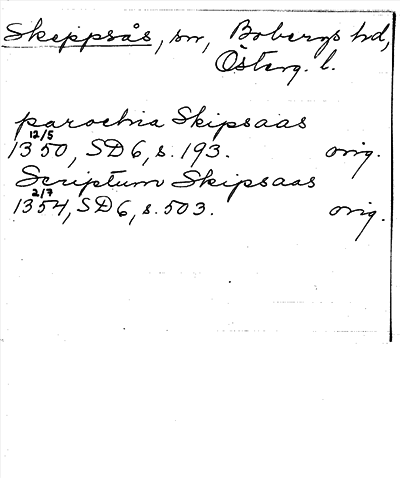 Skeppsås, sn, Bobergs hd,
Österg. l.
parochia Skipsaas
12/5
1350, SD 6, s. 193. orig.
Scriptum Skipsaas
2/7
1354, SD 6, s. 503. orig.